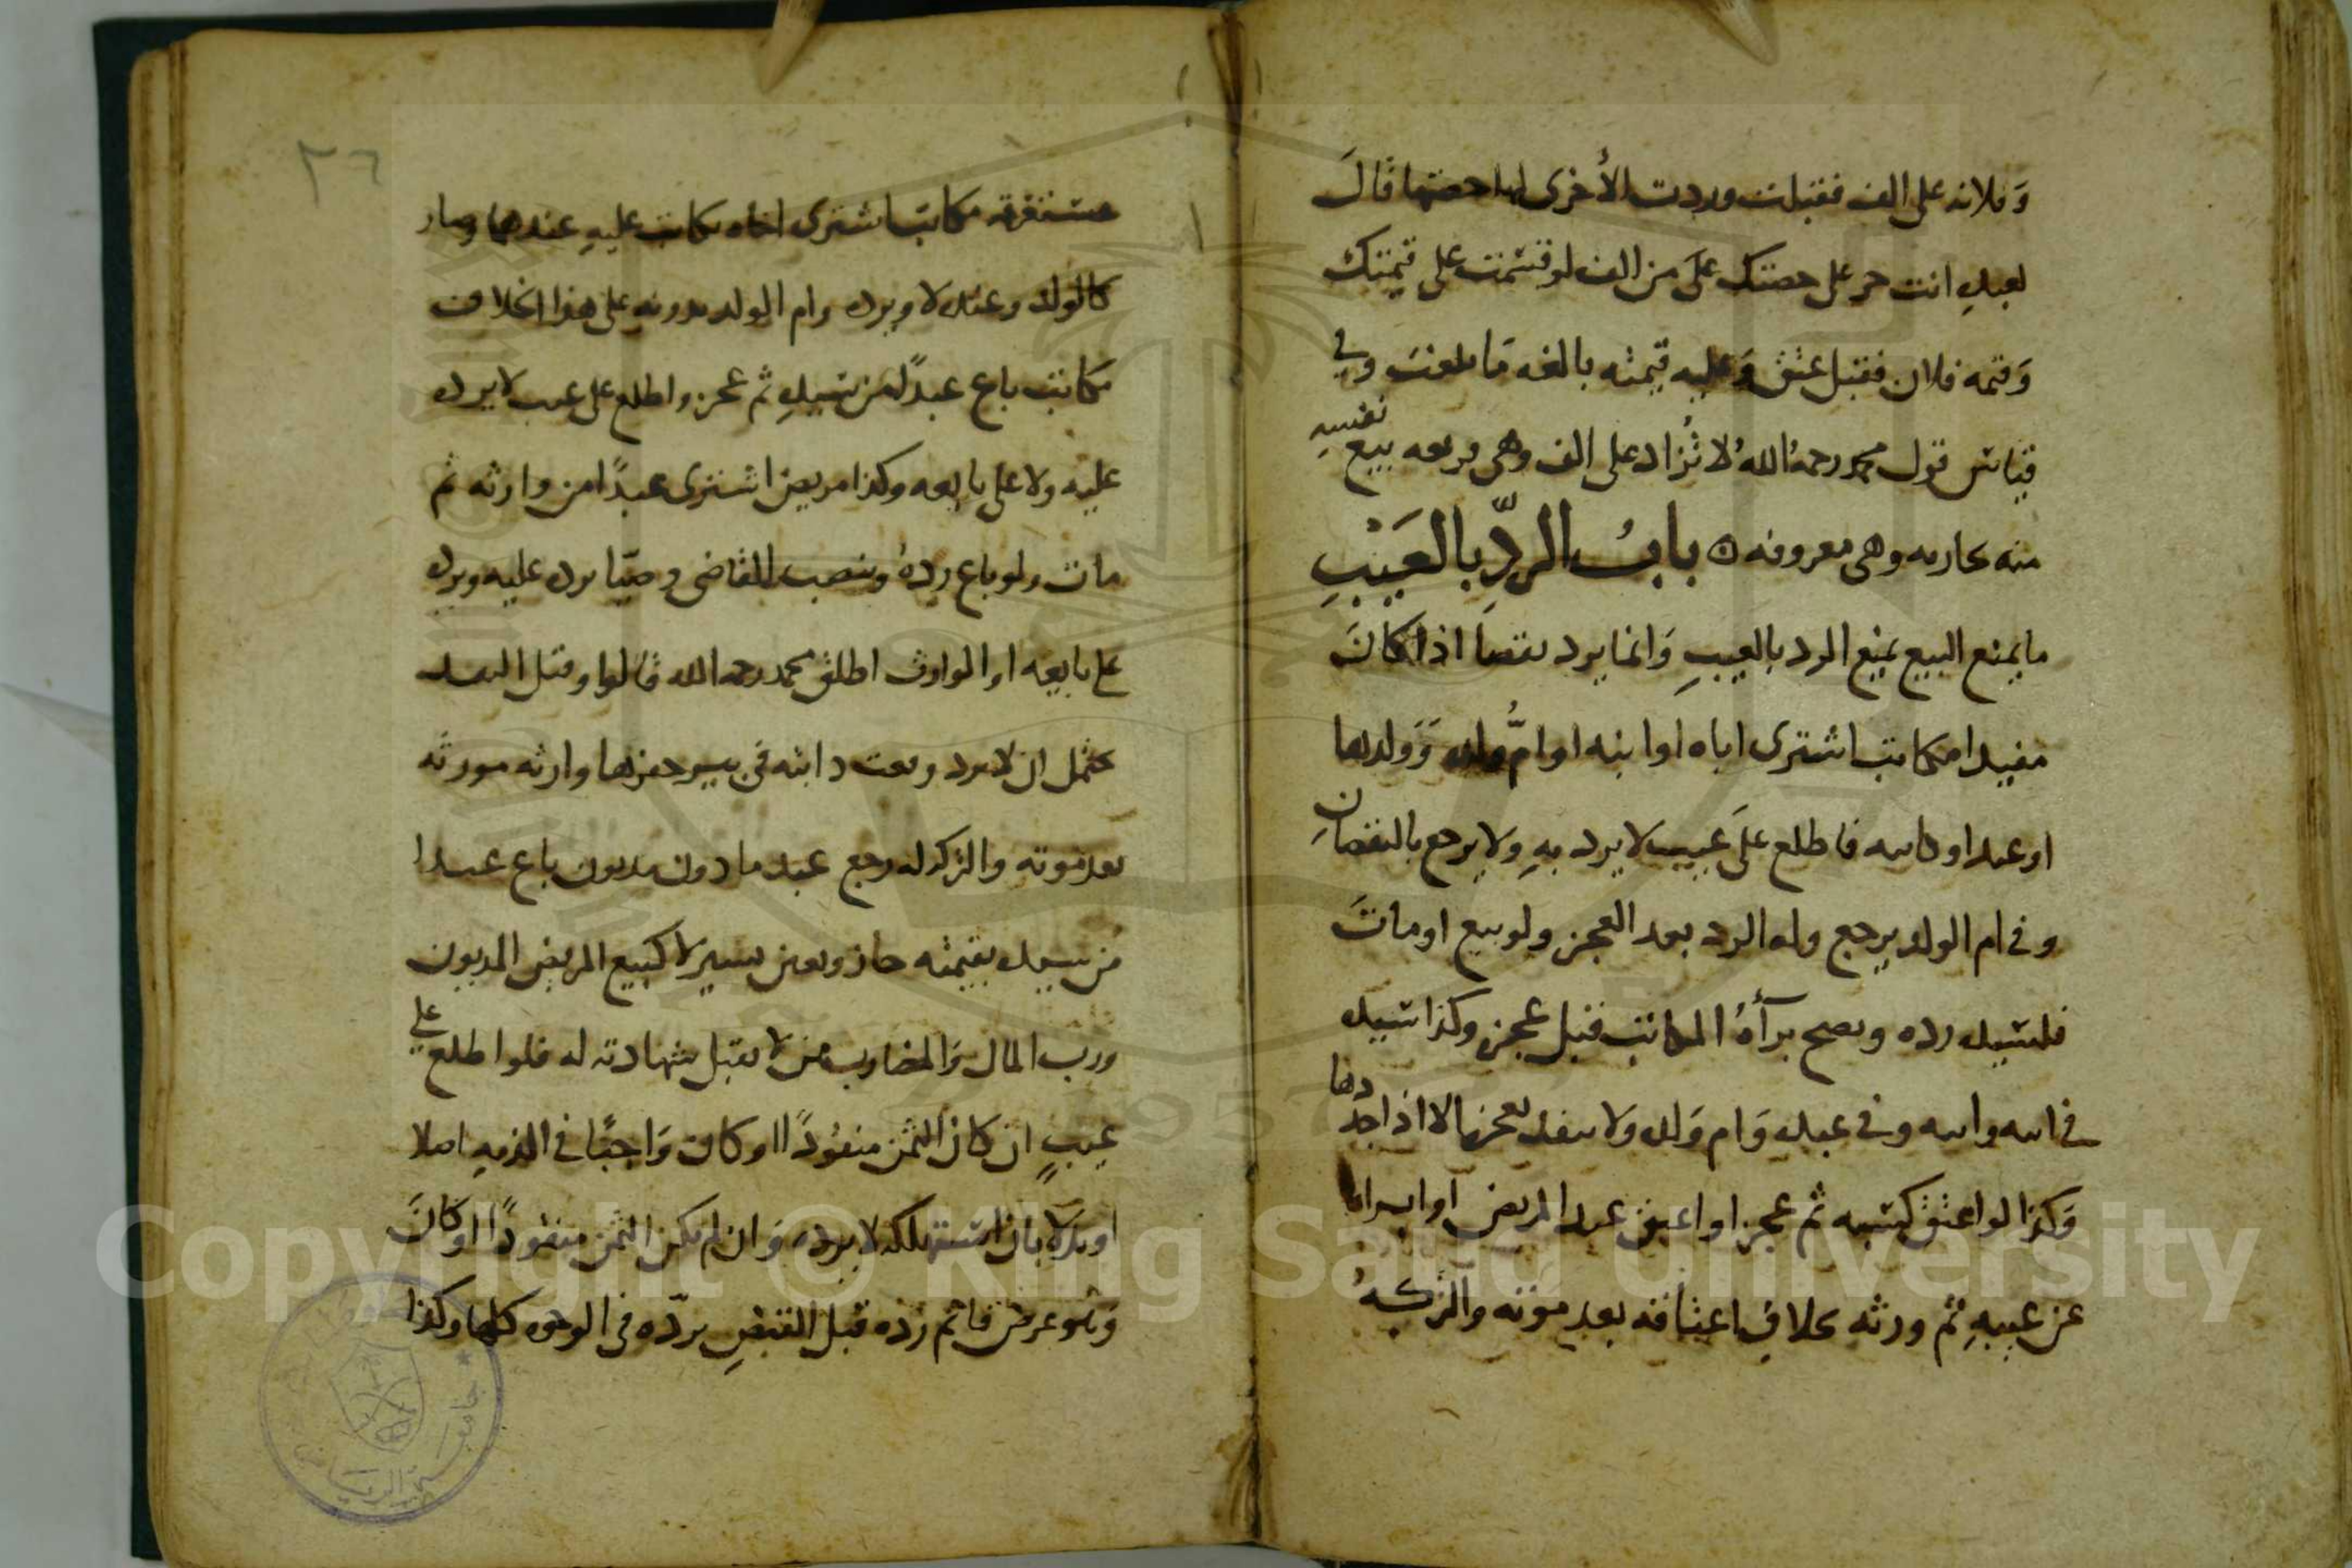 وفلانه على الف فقبلت وردت الأخرى لها حصتها قال
لعبده انت حر على حصتك على من الف لو قسمت على قيمتك
وقيمه فلان فقبل عتق وعليه قيمته بالغه ما بلغت وفي
قياس قول محمد رحمه الله لا تزاد على الف وهي فريعه بيع نفسه
منه بجاريه وهي معروفه باب الرد بالعيب
ما يمنع البيع يمنع الرد بالعيب وانما يرد نقصا اذا كان
مفيدا مكاتب اشترى اباه او ابنه او ام ولده وولدها
او عبدا وكاتبه فاطلع على عيب لا يرد به ولا يرجع بالنقصان
وفي ام الولد يرجع وله الرد بعد العجز ولو بيع او مات
فلسيده رده ويصح براة المكاتب قبل عجزه وكذا سيده
في ابيه وابنه وفي عبده وام ولده ولا ينفذ بعجزها الا اذا جددها
وكذا لو اعتق كسبه ثم عجز او اعتق عبد المريض او ابراه
عن عيبه ثم ورثه بخلاف اعتاقه بعد موته والتركه
٢٦
مستغرقه مكاتب اشترى اخاه تكاتب عليه عندهما وصار
كالولد وعنده لا ويرده وام الولد بدونه على هذا الخلاف
مكاتب باع عبدا من سيده ثم عجز واطلع على عيب لا يرده
عليه ولا على بايعه وكذا مريض اشترى عبدا من وارثه ثم
مات ولو باع رده وينصب القاضي وصيا يرده عليه ويرده
على بايعه او الوارث اطلق محمد رحمه الله قالوا وقبل النقد
يحتمل ان لا يرد وقعت دابته في بير حفرها وارثه مورثه
بعد موته والتركه له رجع عبد ماذون مديون باع عبدا
من سيده بقيمته جاز وبغبن يسير لا كبيع المريض المديون
ورب المال والمضارب ممن لا يقبل شهادته له فلو اطلع على
عيب ان كان الثمن منقودا او كان واجبا في الذمه اصلا
او بدلا بان استهلكه لا يرده وان لم يكن الثمن منقودا او كان
وهو عرض قائم رده قبل القبض يرده في الوجوه كلها وكذا
Copyright © King Saud University